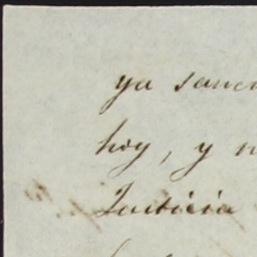 ya sanci
hoy, y n
Justicia